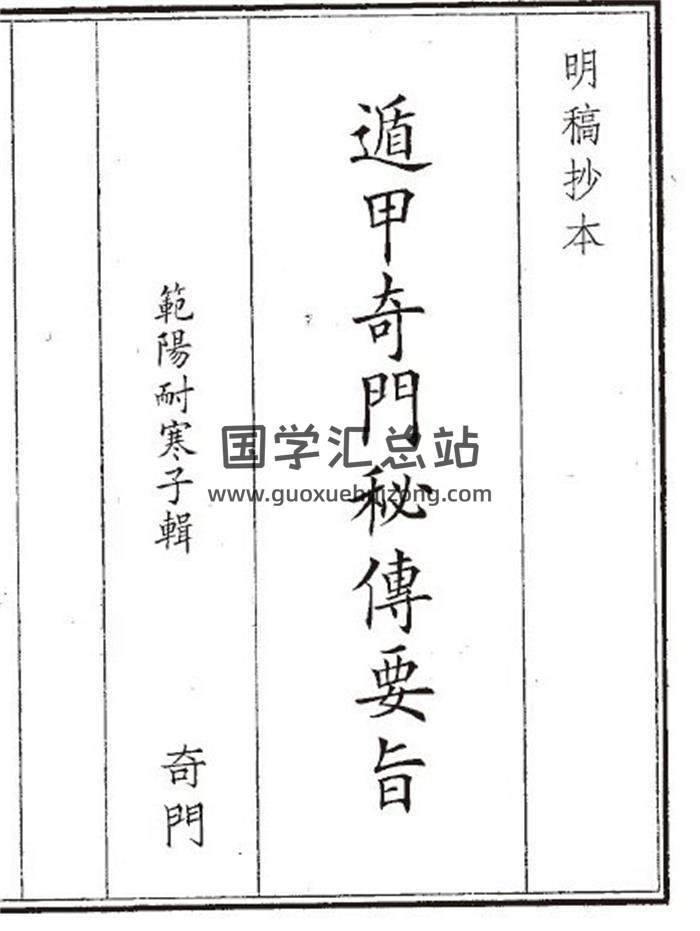 明稿抄本
遁甲奇門秘傳要旨
範陽耐寒子輯
奇門
国学汇总站
www.guoxuehuizong.com